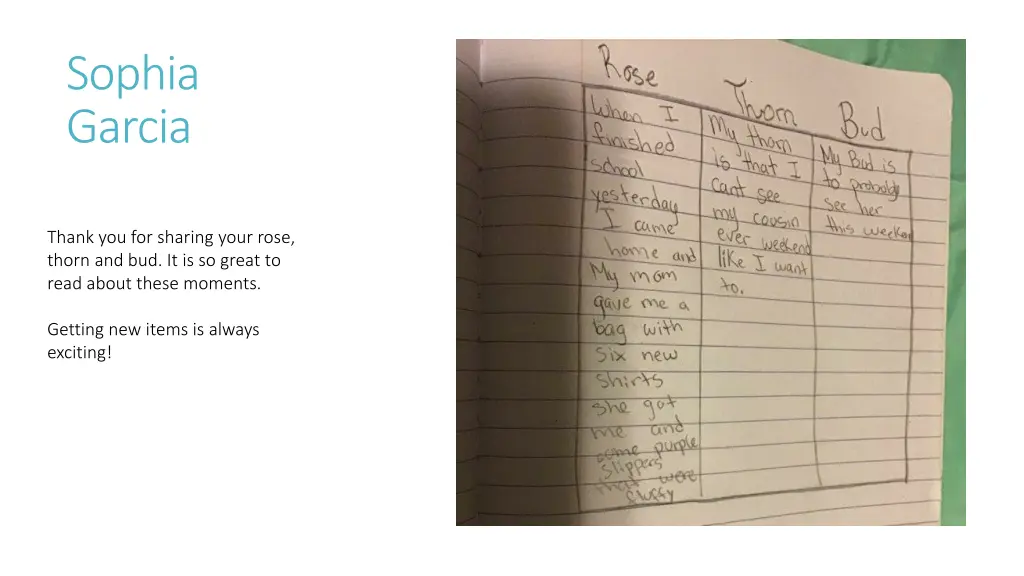 Sophia
Garcia
Thank you for sharing your rose,
thorn and bud. It is so great to
read about these moments.
Getting new items is always
exciting!
Rose
When I
finished
school
yesterday
I came
home and
My mom
gave me a
bag with
six new
shirts
she got
me and
some purple
slippers
that were
fluffy
Thorn
My thorn
is that I
cant see
my cousin
ever weekend
like I want
to.
Bud
My Bud is
to probaldy
see her
this weekend